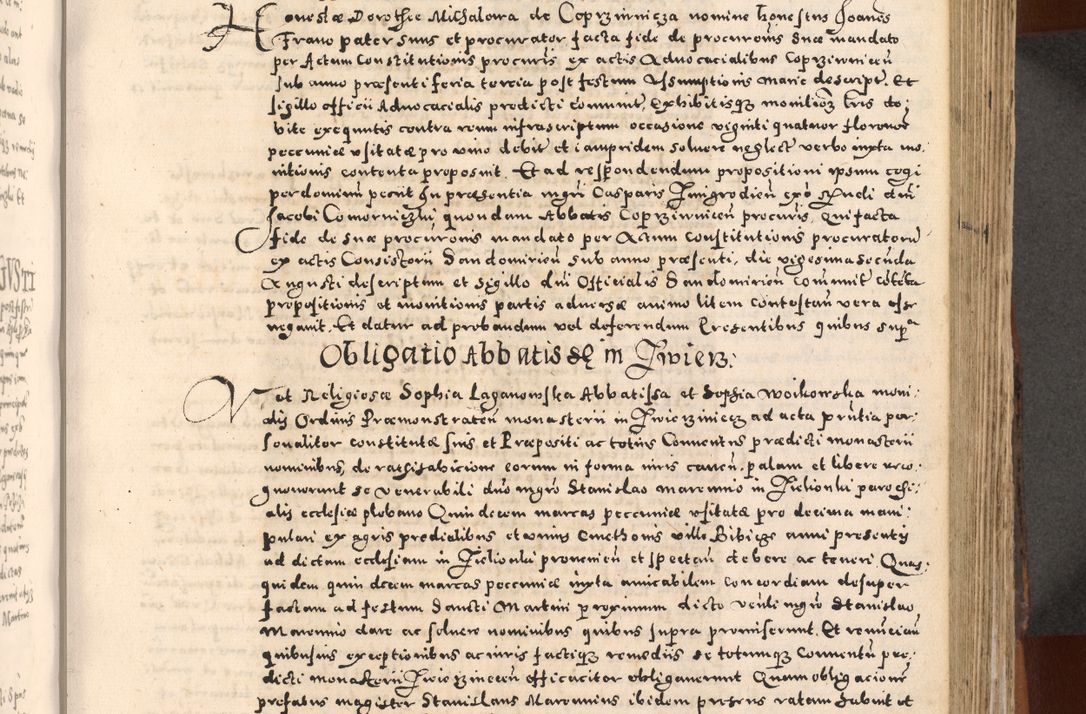 Honestæ Dorotheæ Michalowa de Coprziwnicza nomine honestus Joannes
Franc pater suus et procurator facta fide de procuronis suæ mandato
per Actum Constitutionis procuris ex actis Advocacialibus Coprziwnicen
sub anno præsenti feria tercia post festum Assumptionis Mariæ descript. Et
sigillo officii Advocacialis predicti communit, Exhibitisqz monilioz lris de
bite exequutis contra reum infrascriptum occasione viginti quatuor florenor
pecuniæ usitatæ pro vino debit et iampridem solvere neglect verbo iuxta mo
nitionis contenta proposuit. Et ad respondendum propositioni ipsum cogi
per dominum petiit In præsentia mgri Casparis Jmigrodien
Jacobi Comorniczki quondam Abbatis Coprziwnicen procuris, Qui facta
fide de suæ procuronis mandato per Actum Constitutionis procuratorii
ex actis Consistorii Sandomirien sub anno præsenti, die vigesima secunda
Augusti descriptum et Sigillo dni Officialis Sandomirien communit
propositionis et monitionis partis adversæ animo litem contestan vera esse
negavit. Et datur ad probandum vel deferendum Presentibus quibus supra
Obligatio Abbatissę in Zwierz:
Venet Religiosæ Sophia Laganowska Abbatissa et Sophia Woikowska moni
alis Ordinis Præmonstraten monasterii in Zwierziniecz ad acta pñtia per
sonaliter constitutæ suis et Præpositi ac totius Conventus prædicti monasterii
nominibus, de rathihabicione eorum in forma iuris caven. palam et libere reco
gnoverunt se venerabili dno mgro Stanislao maremnio in Zielionki parochi
alis ecclesiæ plebano Quindecim marcas pecuniæ usitatæ pro decima mani
pulari ex agris predialibus etomnis Cmethonis villæ Bibicze anni presentis
ad dictam ecclesiam in Zielionki provenien et spectan debere ac teneri Quas
quidem quindecim marcas pecuniæ iuxta amicabilem concordiam desuper
factam ad festum Sancti Martini proximum dicto venli mgro Stanislao
Maremnio dare ac solvere nominibus quibus supra promiserunt. Et renuncian
quibusvis exceptionibus ac iuris factiqz remediis se totumqz Conventum præ
dicti monasterii Zwierzinecen efficaciter obligaverunt Quam obligacionem
prefatus magister Stanislaus Maremnius ibidem presens ratam habuit et